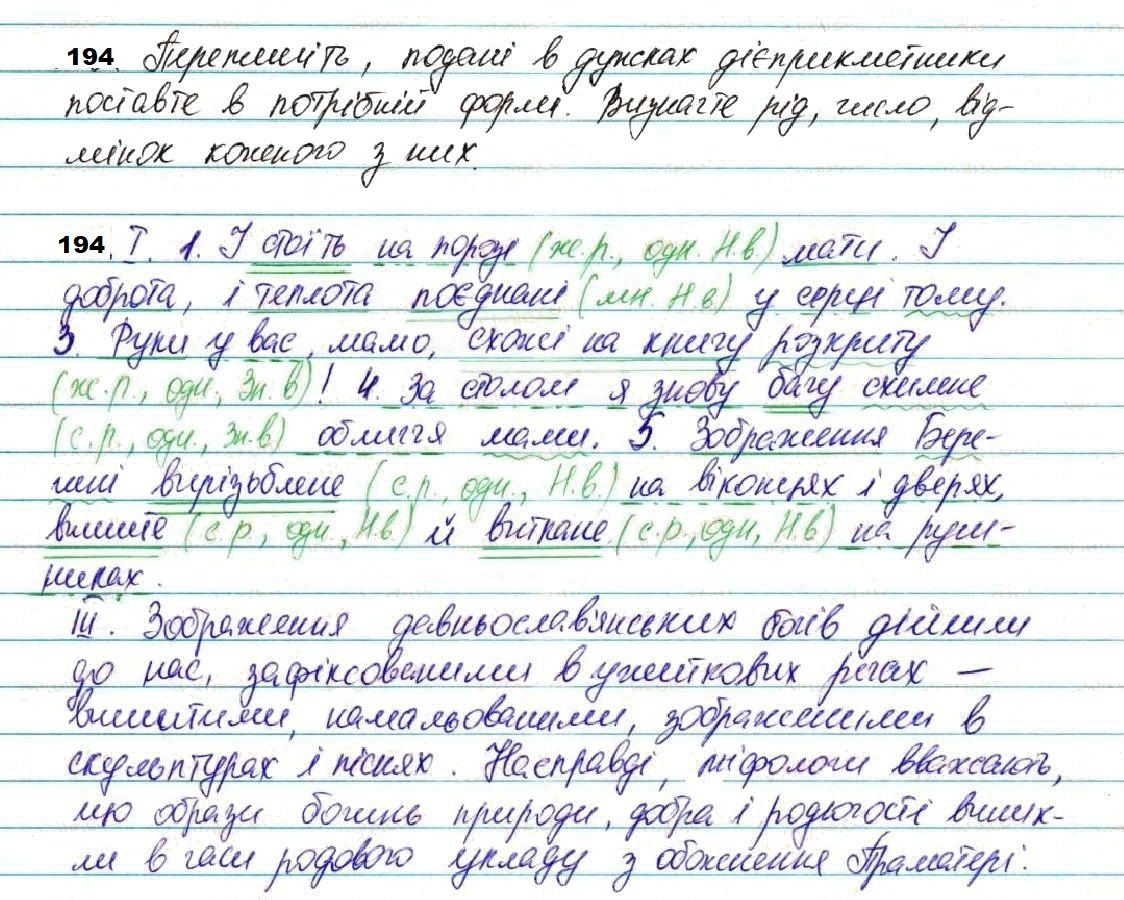 194. Перепишіть, подані в дужках дієприкметники
поставте в потрібній формі. Визначте рід, число, від-
мінок кожного з них.
194. І. 1. І стоїть на порозі (ж.р., одн. Н.в.) мати. І
доброта, і теплота поєднані (мн. Н.в) у серці тому.
3. Руки у вас, мамо, схожі на книгу розкриту
(ж.р., одн., Зн.в)! 4. За столом я знову бачу схилене
(с.р., одн., Зн.в) обличчя мами. 5. Зображення Бере-
гині вирізьблене (с.р., одн., Н.в.) на віконцях і дверях,
вишите (с.р., одн., Н.в.) й виткане (с.р., одн, Н.в) на руш-
никах.
ІІІ. Зображення давньослав'янських богів дійшли
до нас, зафіксованими в ужиткових речах —
вишитими, намальованими, зображеними в
скульптурах і піснях. Насправді, міфологи вважають,
що образи богинь природи, добра і родючості виник-
ли в часи родового укладу з обоження Праматері.